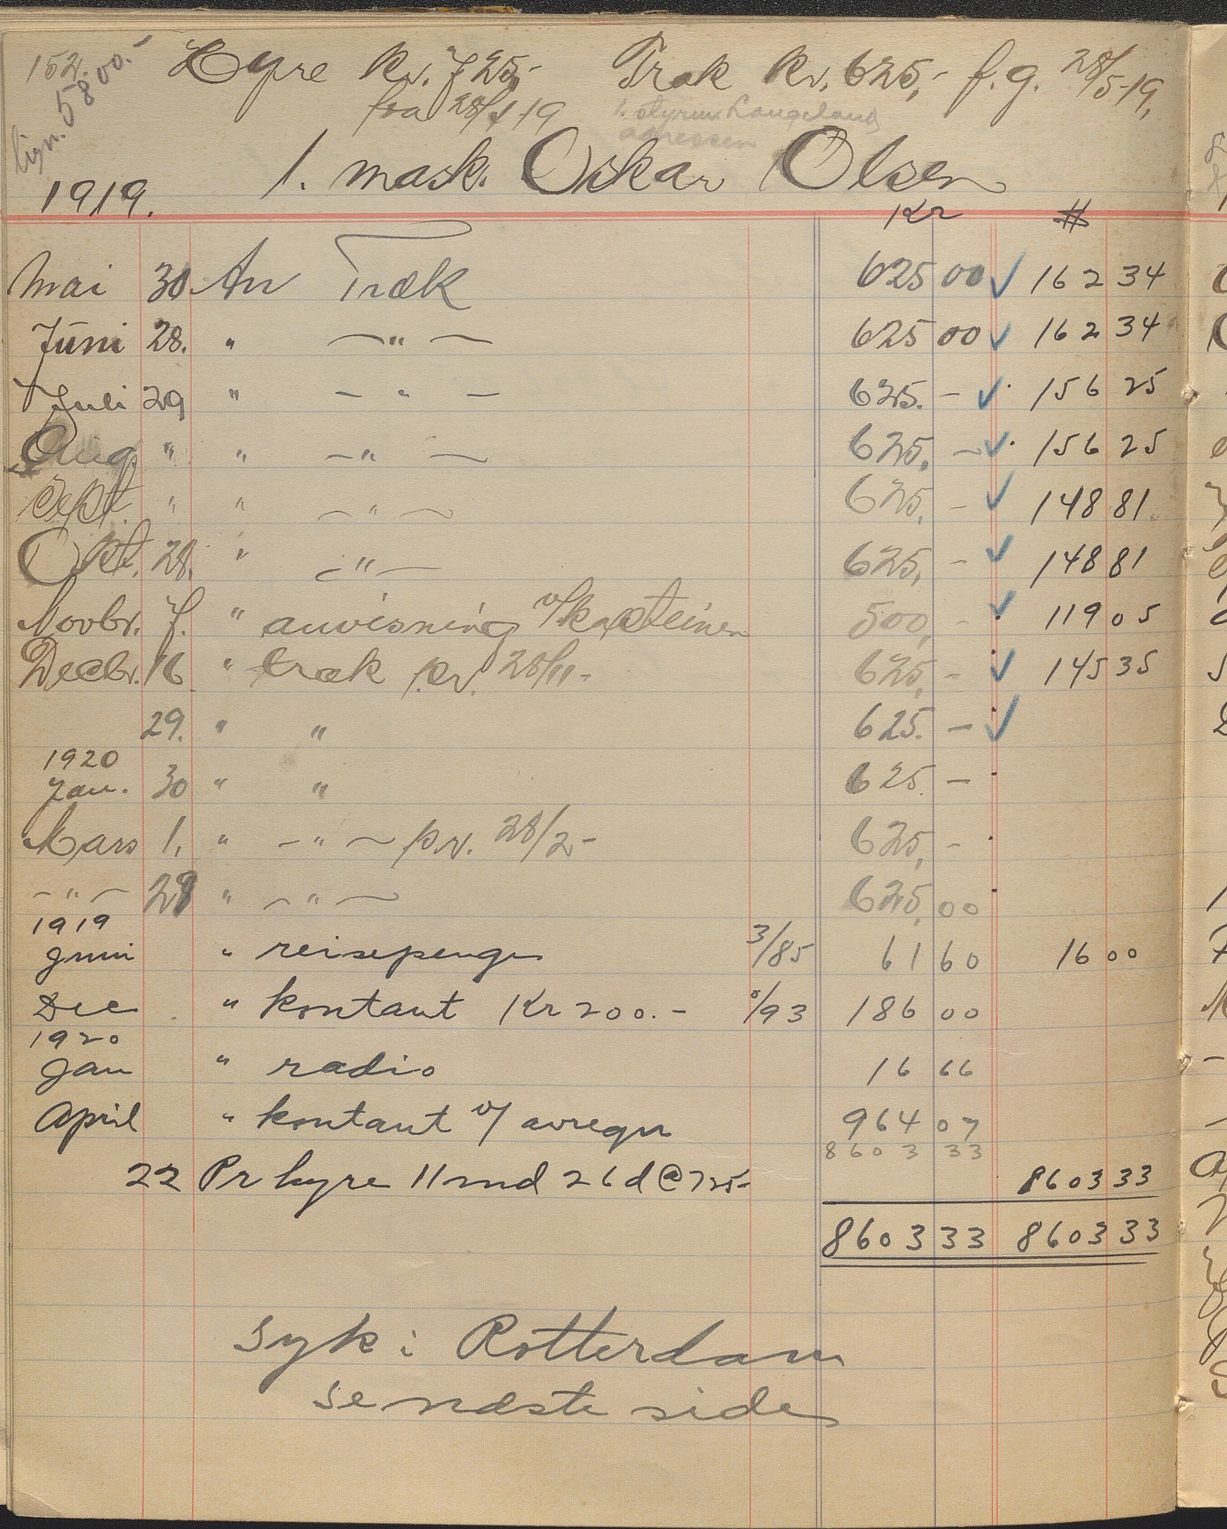 152. Hyre Kr. 725,- Træk Kr. 625,- f.g. 28/5-19.
lign. 5800.-
fra 28/4 19 1. styrm Langelands
adressen
1919. 1. mask. Oskar Olsen
Kr #
Mai 30 An Træk 625 00 162 34
Juni 28. " —"— 625 00 162 34
Juli 29 " —"— 625. — 156 25
Aug. " " —"— 625, — 156 25
Sept. " " —"— 625, - 148 81
Okt. 28. " —"— 625, - 148 81
Novbr. 7. " anvisning v/kapteinen 500, - 119 05
Decbr. 16 " træk pr. 28/11- 625, - 145 35
29. " " 625. —
1920
Jan. 30 " " 625. —
Mars 1. " —"— pr. 28/2- 625, -
—"— 29 " —"— 625, 00
1919
Juni " reisepenge 3/85 61 60 16 00
Dec " kontant Kr 200.- °/93 186 00
1920
Jan " radio 16 66
April " kontant v/ avregn 964 07
8603 33
22 Pr hyre 11 md 26 d @ 725- 8603 33
8603 33 8603 33
Syk i Rotterdam
se næste side